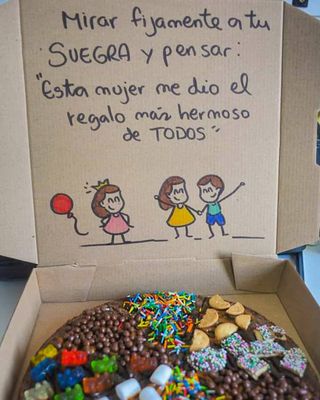 Mirar fijamente a tu
SUEGRA y pensar:
"Esta mujer me dio el
regalo más hermoso
de TODOS"